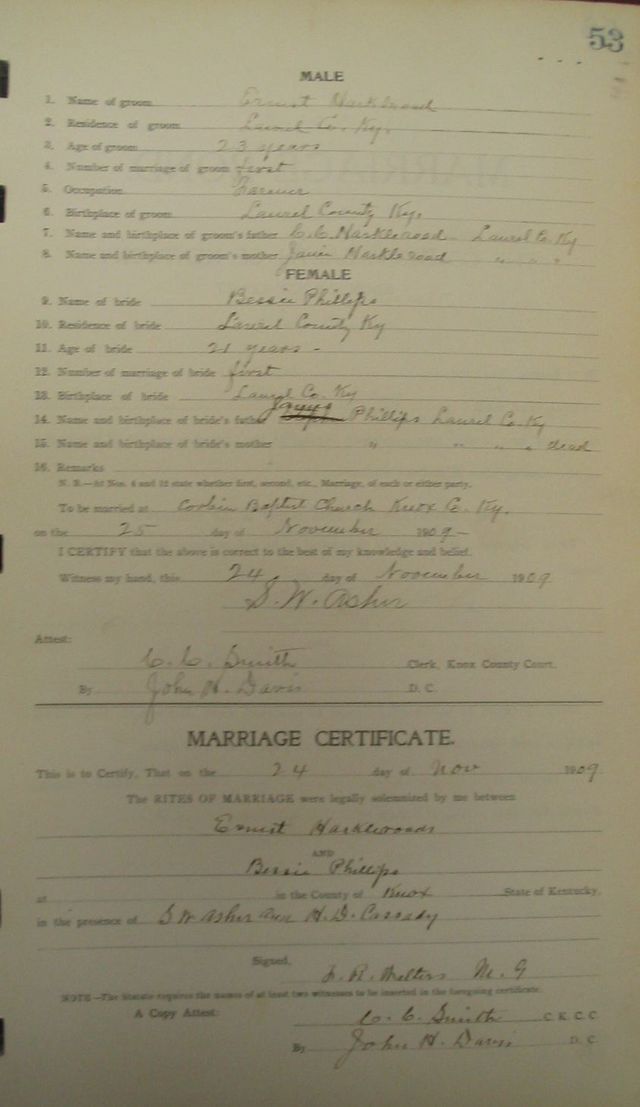 53
MALE
1. Name of groom Ernest Harkleroad
2. Residence of groom Laurel Co. Ky.
3. Age of groom 23 years
4. Number of marriage of groom first
5. Occupation Farmer
6. Birthplace of groom Laurel County Ky.
7. Name and birthplace of groom's father C. C. Harkleroad Laurel Co. Ky
8. Name and birthplace of groom's mother Harkleroad " " "
FEMALE
9. Name of bride Bessie Phillips
10. Residence of bride Laurel County Ky
11. Age of bride 21 years -
12. Number of marriage of bride first
13. Birthplace of bride Laurel Co. Ky
14. Name and birthplace of bride's father Phillips Laurel Co. Ky
15. Name and birthplace of bride's mother " " " " dead
16. Remarks
N. B.—At Nos. 4 and 12 state whether first, second, etc., Marriage, of each or either party.
To be married at Corbin Baptist Church Knox Co. Ky.
on the 25 day of November 1909 -
I CERTIFY that the above is correct to the best of my knowledge and belief.
Witness my hand, this 24 day of November 1909
S. W. Asher
Attest:
C. C. Smith Clerk, Knox County Court.
By John H. Davis D. C.
MARRIAGE CERTIFICATE.
This is to Certify, That on the 24 day of Nov 1909
The RITES OF MARRIAGE were legally solemnized by me between
Ernest Harkleroads
AND
Bessie Phillips
at in the County of Knox State of Kentucky,
in the presence of S W Asher and H. D. Cassady
Signed, Walters M. G
NOTE—The Statute requires the names of at least two witnesses to be inserted in the foregoing certificate.
A Copy Attest: C. C. Smith C. K. C. C
By John H. Davis D. C.